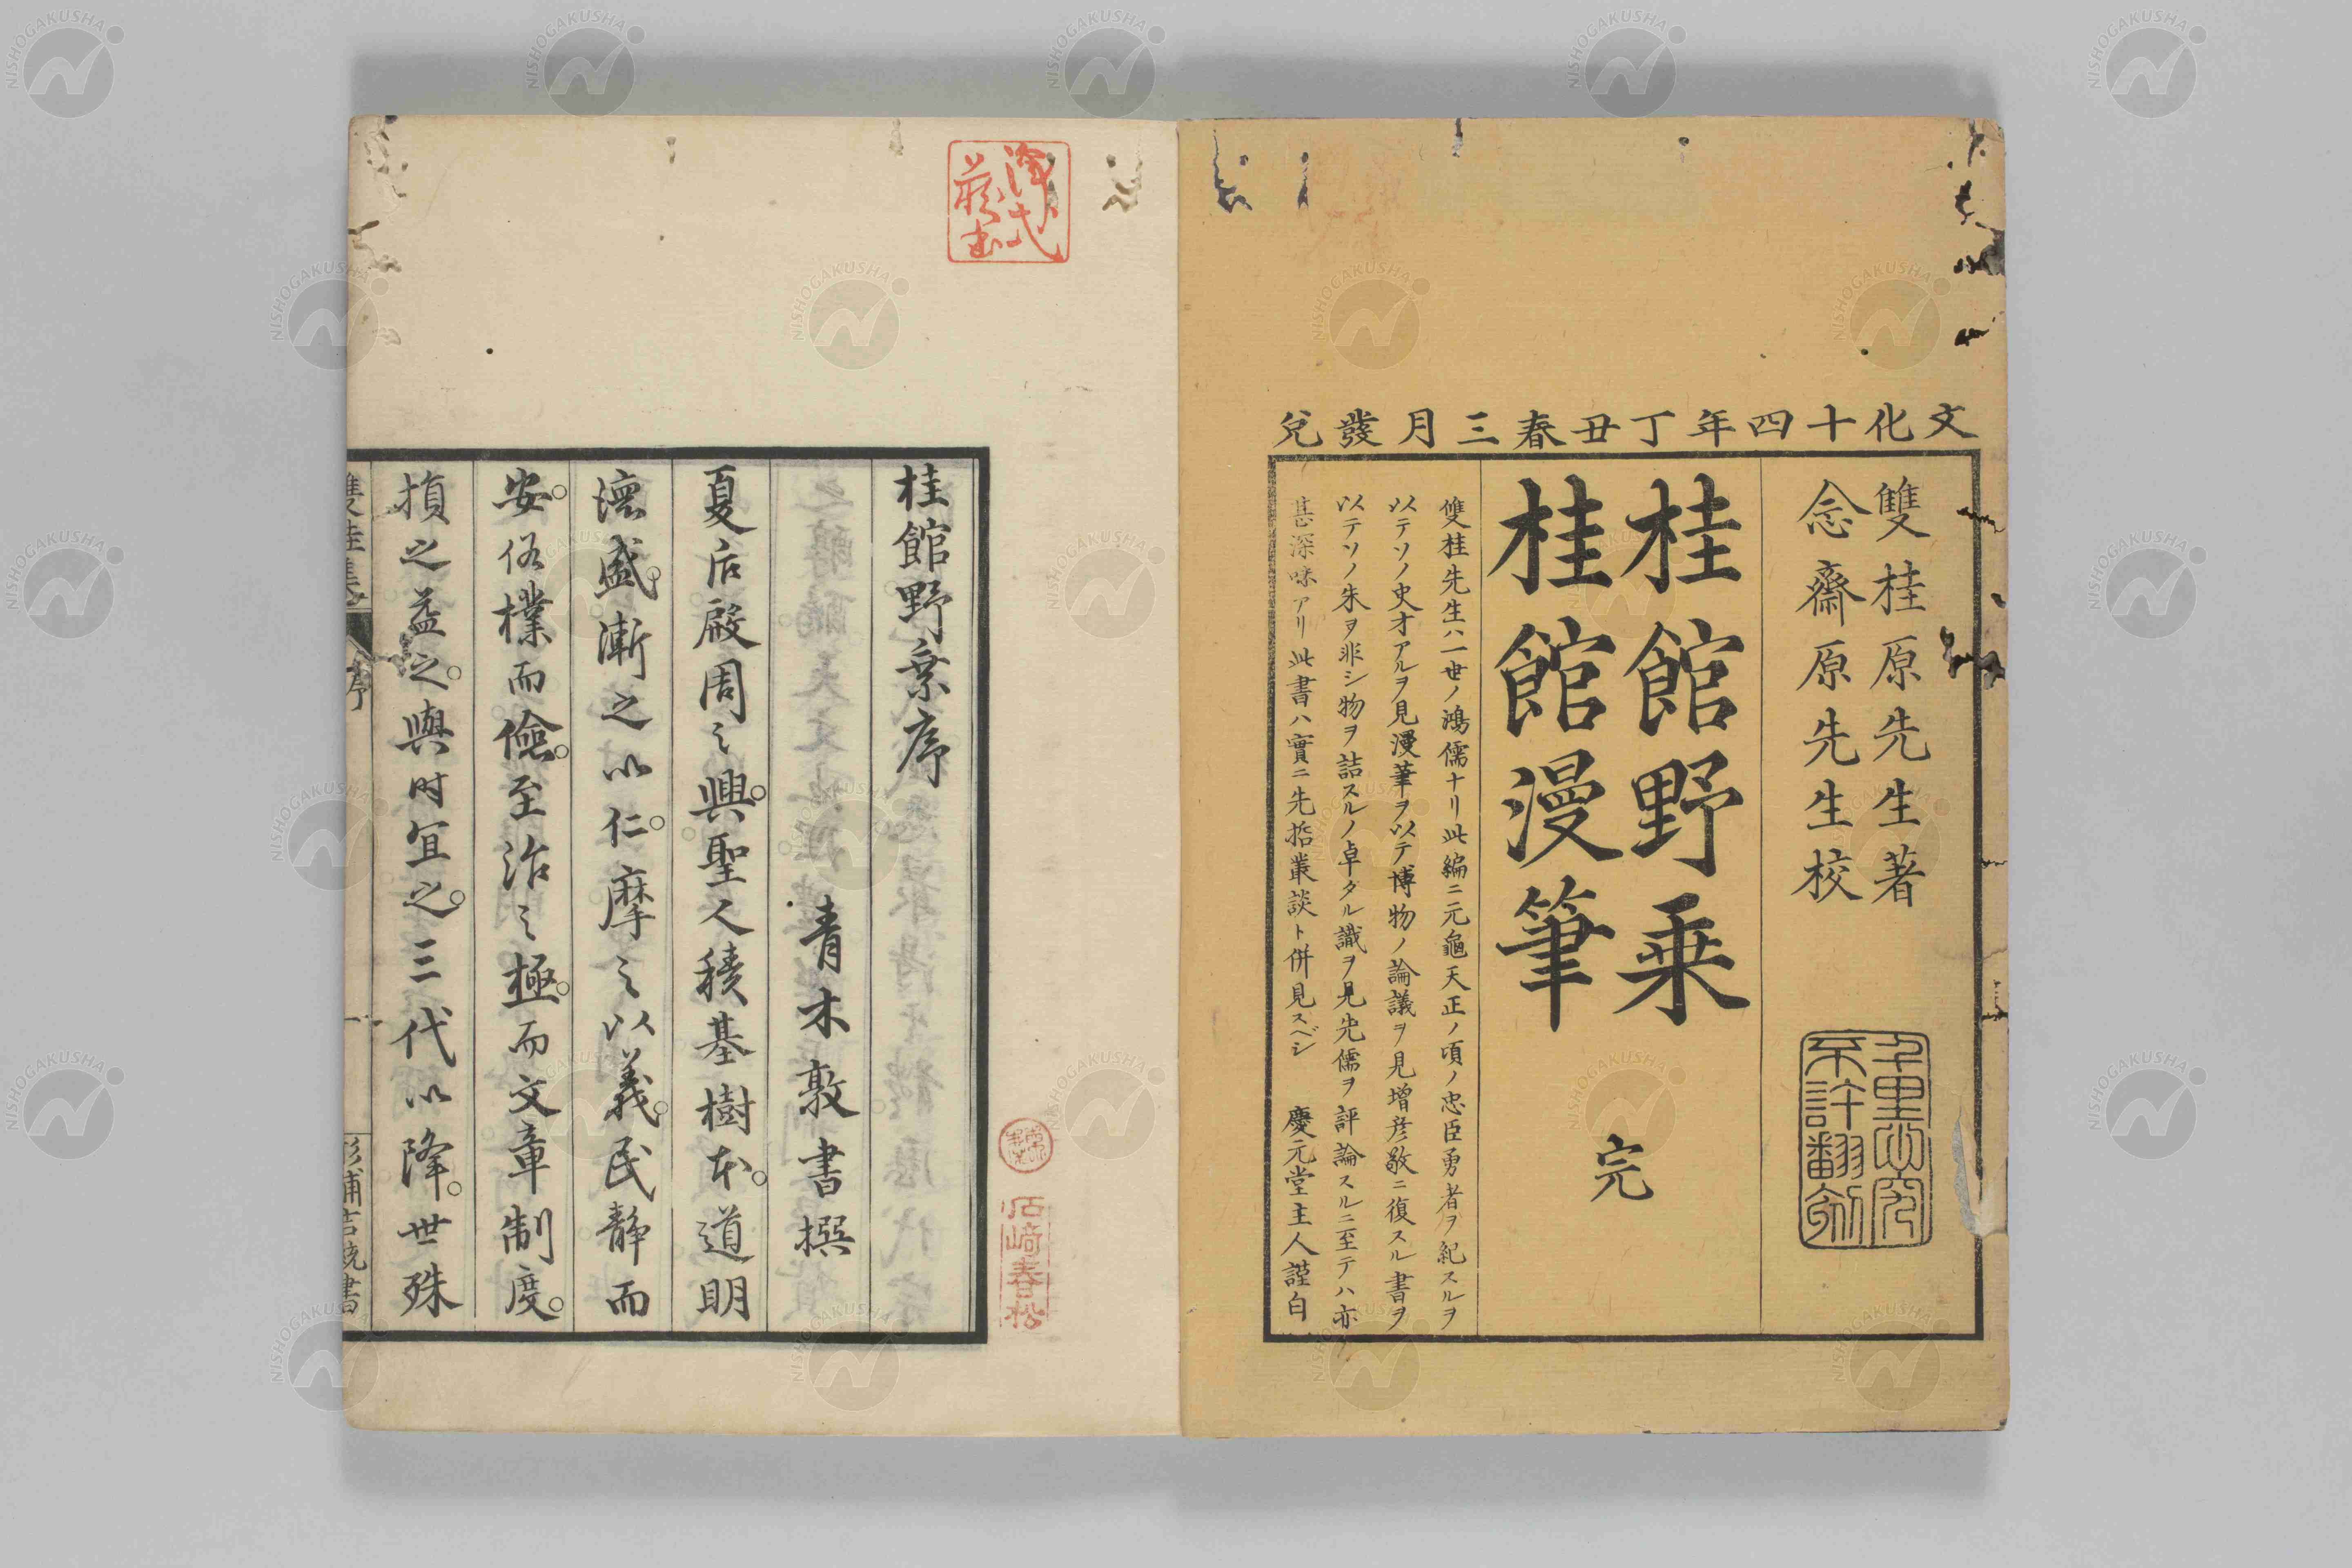 文化十四年丁丑春三月發兌
雙桂原先生著
念齋原先生校
千里必究
不許翻刻
桂館野乗
桂館漫筆
完
雙桂先生ハ一世ノ鴻儒ナリ此編ニ元龜天正ノ頃ノ忠臣勇者ヲ紀スルヲ
以テソノ史才アルヲ見漫筆ヲ以テ博物ノ論議ヲ見増彦敬ニ復スル書ヲ
以テソノ朱ヲ非シ物ヲ詰スルノ卓タル識ヲ見先儒ヲ評論スルニ至テハ亦
甚深味アリ此書ハ實ニ先哲叢談ト併見スベシ 慶元堂主人謹白
藏書
石﨑春松
桂館野乗序
青木敦書撰
夏后殷周之興聖人積基樹本道明
德盛漸之以仁摩之以義民靜而
安俗樸而儉至治之極而文章制度
損之益之與时宜之三代以降世殊
雙桂集
序
一
杉浦吉統書
NISHOGAKUSHA